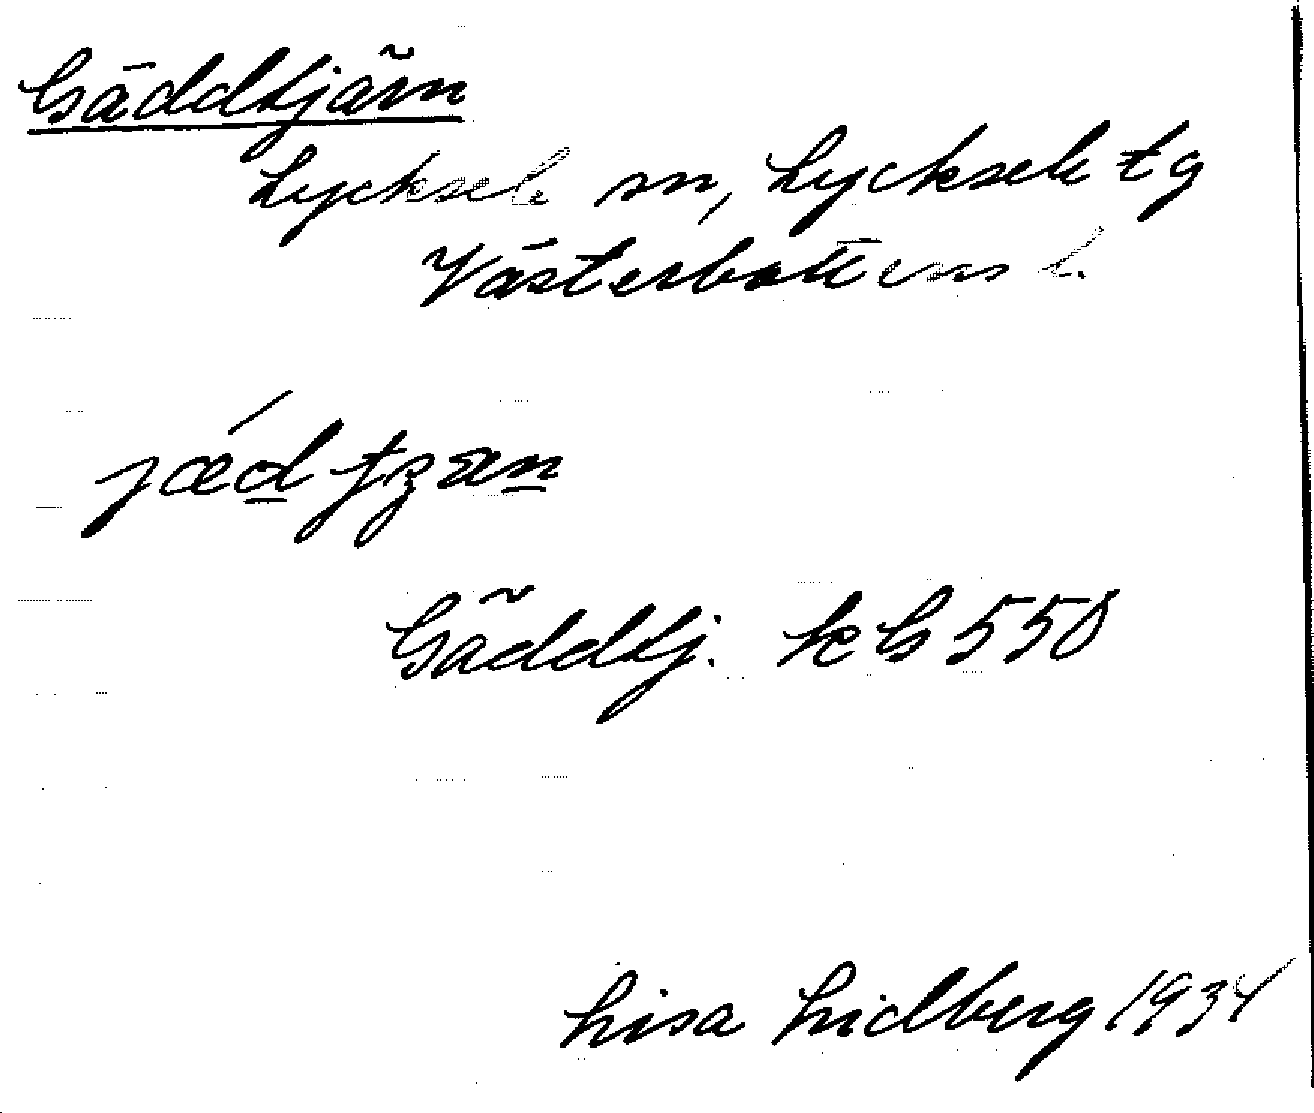 Gäddtjärn
Lycksele sn, Lycksele tg
Västerbottens l.
Gäddtj. kb 550
Lisa Lidberg 1934